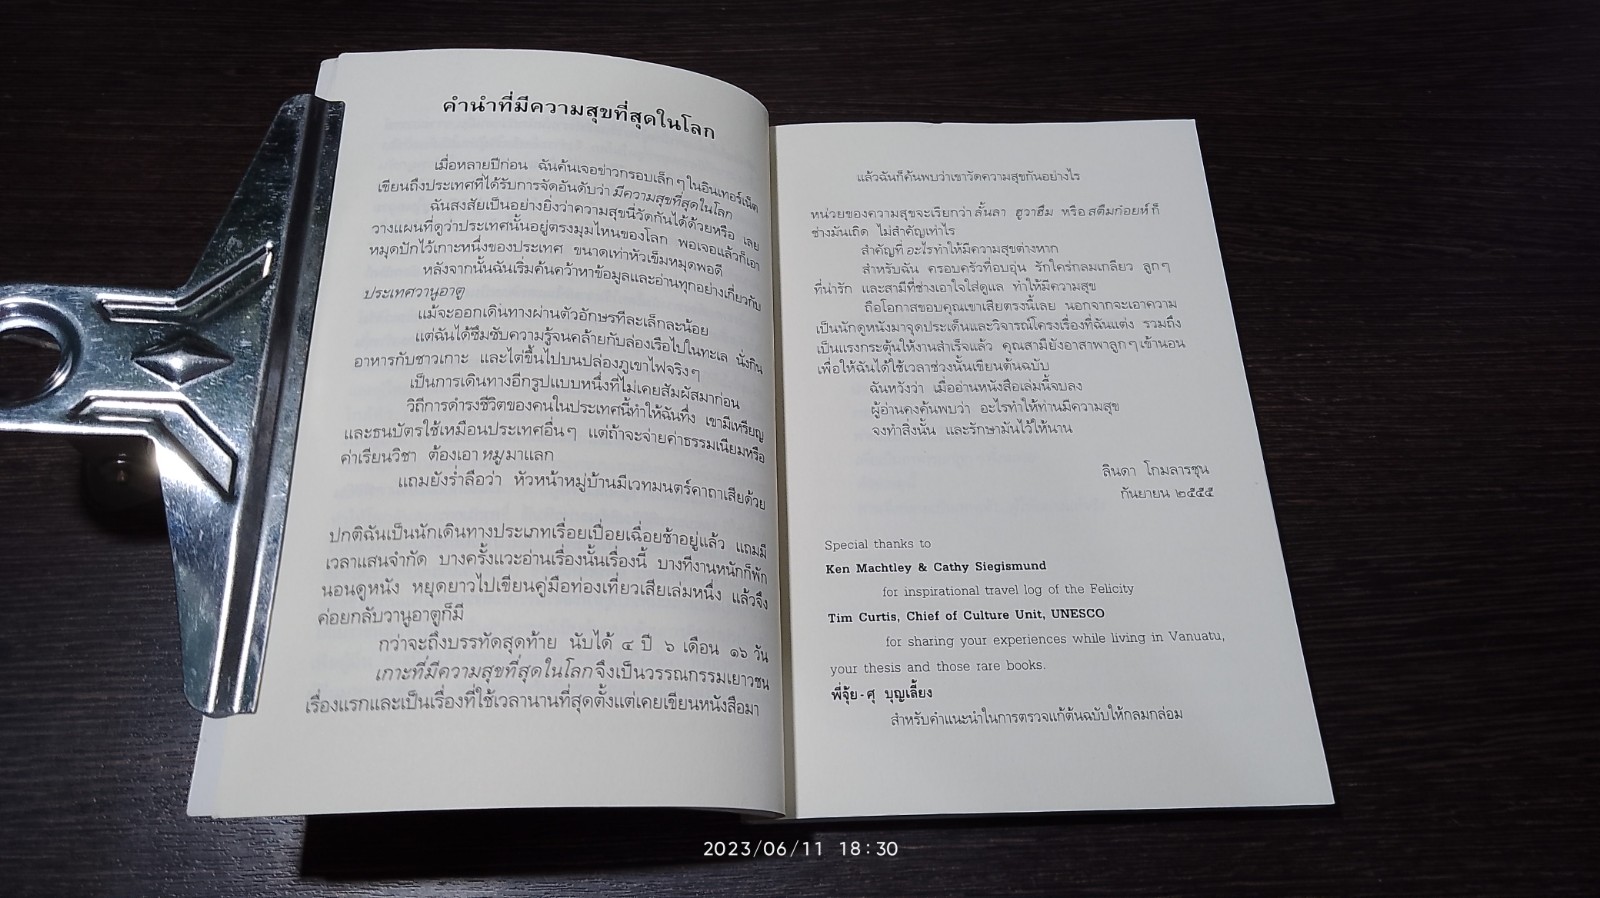 คำนำที่มีความสุขที่สุดในโลก
เมื่อหลายปีก่อน ฉันค้นเจอข่าวกรอบเล็กๆ ในอินเทอร์เน็ต
เขียนถึงประเทศที่ได้รับการจัดอันดับว่า มีความสุขที่สุดในโลก
ฉันสงสัยเป็นอย่างยิ่งว่าความสุขนี่วัดกันได้ด้วยหรือ เลย
วางแผนที่ดูว่าประเทศนั้นอยู่ตรงมุมไหนของโลก พอเจอแล้วก็เอา
หมุดปักไว้เกาะหนึ่งของประเทศ ขนาดเท่าหัวเข็มหมุดพอดี
หลังจากนั้นฉันเริ่มค้นคว้าหาข้อมูลและอ่านทุกอย่างเกี่ยวกับ
ประเทศวานูอาตู
แม้จะออกเดินทางผ่านตัวอักษรทีละเล็กละน้อย
แต่ฉันได้ซึมซับความรู้จนคล้ายกับล่องเรือไปในทะเล นั่งกิน
อาหารกับชาวเกาะ และไต่ขึ้นไปบนปล่องภูเขาไฟจริงๆ
เป็นการเดินทางอีกรูปแบบหนึ่งที่ไม่เคยสัมผัสมาก่อน
วิถีการดำรงชีวิตของคนในประเทศนี้ทำให้ฉันทึ่ง เขามีเหรียญ
และธนบัตรใช้เหมือนประเทศอื่นๆ แต่ถ้าจะจ่ายค่าธรรมเนียมหรือ
ค่าเรียนวิชา ต้องเอา หมู มาแลก
แถมยังร่ำลือว่า หัวหน้าหมู่บ้านมีเวทมนตร์คาถาเสียด้วย
ปกติฉันเป็นนักเดินทางประเภทเรื่อยเปื่อยเฉื่อยช้าอยู่แล้ว แถมมี
เวลาแสนจำกัด บางครั้งแวะอ่านเรื่องนั้นเรื่องนี้ บางทีงานหนักก็พัก
นอนดูหนัง หยุดยาวไปเขียนคู่มือท่องเที่ยวเสียเล่มหนึ่ง แล้วจึง
ค่อยกลับวานูอาตูก็มี
กว่าจะถึงบรรทัดสุดท้าย นับได้ ๔ ปี ๖ เดือน ๑๖ วัน
เกาะที่มีความสุขที่สุดในโลก จึงเป็นวรรณกรรมเยาวชน
เรื่องแรกและเป็นเรื่องที่ใช้เวลานานที่สุดตั้งแต่เคยเขียนหนังสือมา
แล้วฉันก็ค้นพบว่าเขาวัดความสุขกันอย่างไร
หน่วยของความสุขจะเรียกว่า ลั้นลา ฮูวาฮึม หรือ สตึมก่อยห์ ก็
ช่างมันเถิด ไม่สำคัญเท่าไร
สำคัญที่ อะไรทำให้มีความสุขต่างหาก
สำหรับฉัน ครอบครัวที่อบอุ่น รักใคร่กลมเกลียว ลูกๆ
ที่น่ารัก และสามีที่ช่างเอาใจใส่ดูแล ทำให้มีความสุข
ถือโอกาสขอบคุณเขาเสียตรงนี้เลย นอกจากจะเอาความ
เป็นนักดูหนังมาจุดประเด็นและวิจารณ์โครงเรื่องที่ฉันแต่ง รวมถึง
เป็นแรงกระตุ้นให้งานสำเร็จแล้ว คุณสามียังอาสาพาลูกๆ เข้านอน
เพื่อให้ฉันได้ใช้เวลาช่วงนั้นเขียนต้นฉบับ
ฉันหวังว่า เมื่ออ่านหนังสือเล่มนี้จบลง
ผู้อ่านคงค้นพบว่า อะไรทำให้ท่านมีความสุข
จงทำสิ่งนั้น และรักษามันไว้ให้นาน
ลินดา โกมลารชุน
กันยายน ๒๕๕๕
Special thanks to
Ken Machtley & Cathy Siegismund
for inspirational travel log of the Felicity
Tim Curtis, Chief of Culture Unit, UNESCO
for sharing your experiences while living in Vanuatu,
your thesis and those rare books.
พี่จุ้ย - ศุ บุญเลี้ยง
สำหรับคำแนะนำในการตรวจแก้ต้นฉบับให้กลมกล่อม
2023/06/11 18:30